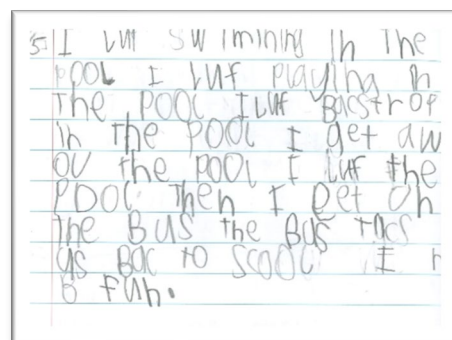 5 I luf swimining in the
pool I luf playing in
the pool I luf Bacstrop
in the pool I get aw
ov the pool I luf the
pool Then I get on
the Bus the Bus tacs
as Bac to scool I
fun.